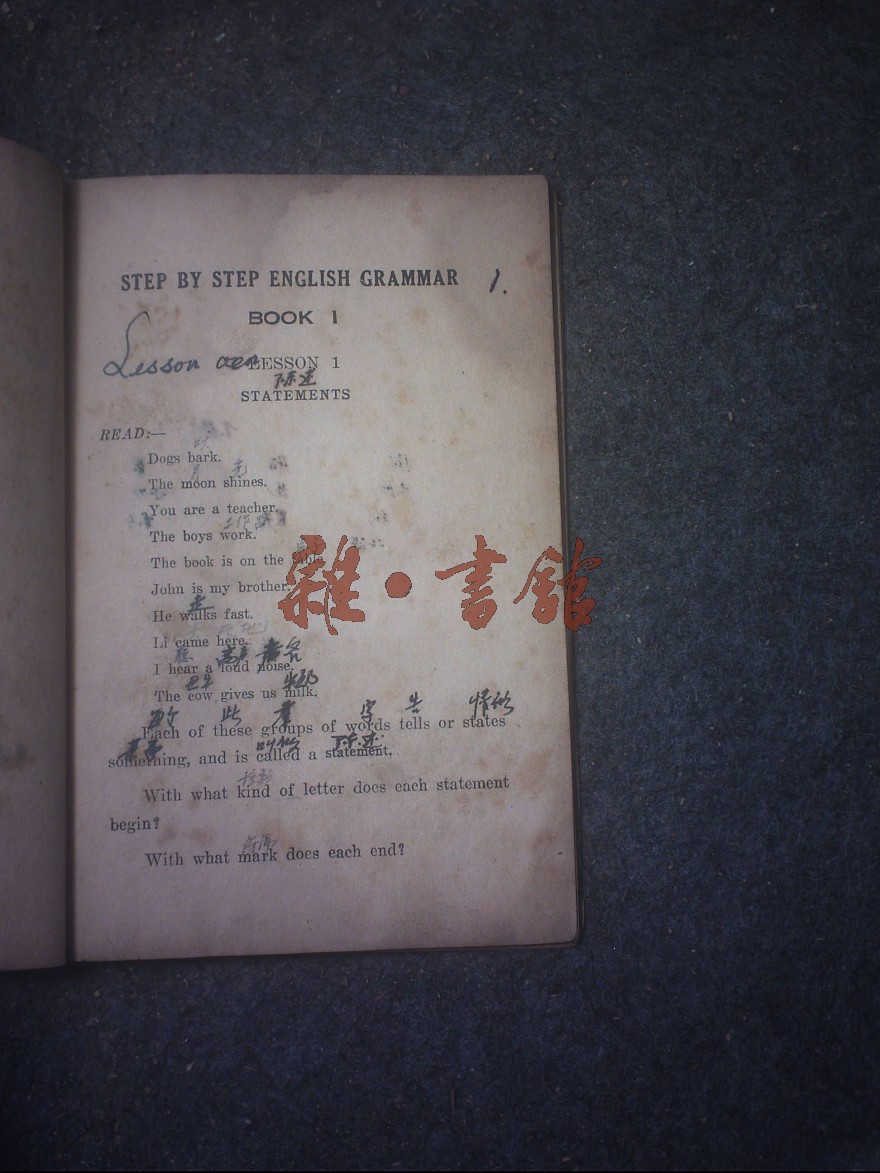 STEP BY STEP ENGLISH GRAMMAR 1.
BOOK 1
Lesson LESSON 1
陈述
STATEMENTS
READ:—
Dogs bark.
The moon shines.
You are a teacher.
工作
The boys work.
The book is on the table.
John is my brother.
走
He walks fast.
Li came here.
I hear a loud noise.
The cow gives us milk.
此 字 告
Each of these groups of words tells or states
陈述
something, and is called a statement.
With what kind of letter does each statement
begin?
With what mark does each end?
雜·書館